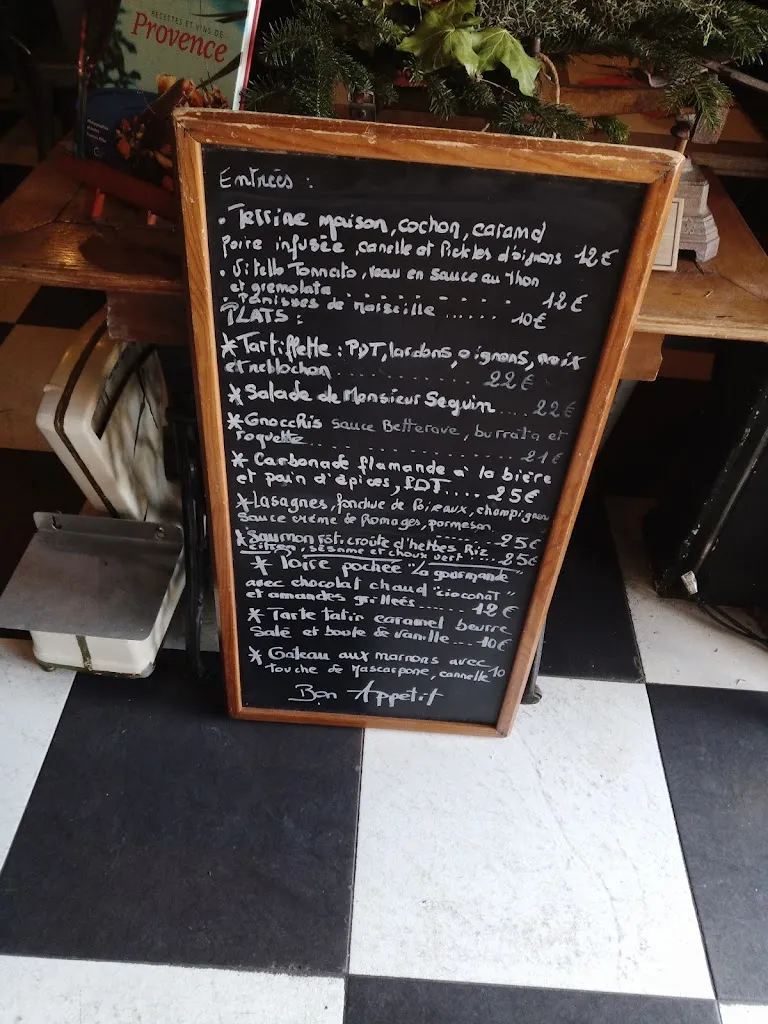 RECETTES ET VINS DE
Provence
Entrées :
• Terrine maison, cochon, caramel
poire infusée, canelle et Pickles d'oignons 12€
• Vitello Tonnato, veau en sauce au thon
et gremolata . . . . . . . . 12€
• Panisses de Marseille ...... 10€
PLATS :
* Tartiflette : PDT, lardons, oignons, noix
et reblochon .............. 22€
* Salade de Monsieur Seguin .... 22€
* Gnocchis sauce Betterave, burrata et
roquette .............. 21€
* Carbonade flamande à la bière
et pain d'épices, PDT .... 25€
* Lasagnes, fondue de Poireaux, champignon
sauce crème de fromages, parmesan
25€
* Saumon rôt. croûte d'herbes Riz
citron, sésame et choux vert .. 25€
* Poire pochée "La gourmande"
avec chocolat chaud "cioconat"
et amandes grillées ...... 12€
* Tarte tatin caramel beurre
Salé et boule de Vanille ... 10€
* Gateau aux marrons avec
touche de Mascarpone, cannelle 10
Bon Appétit